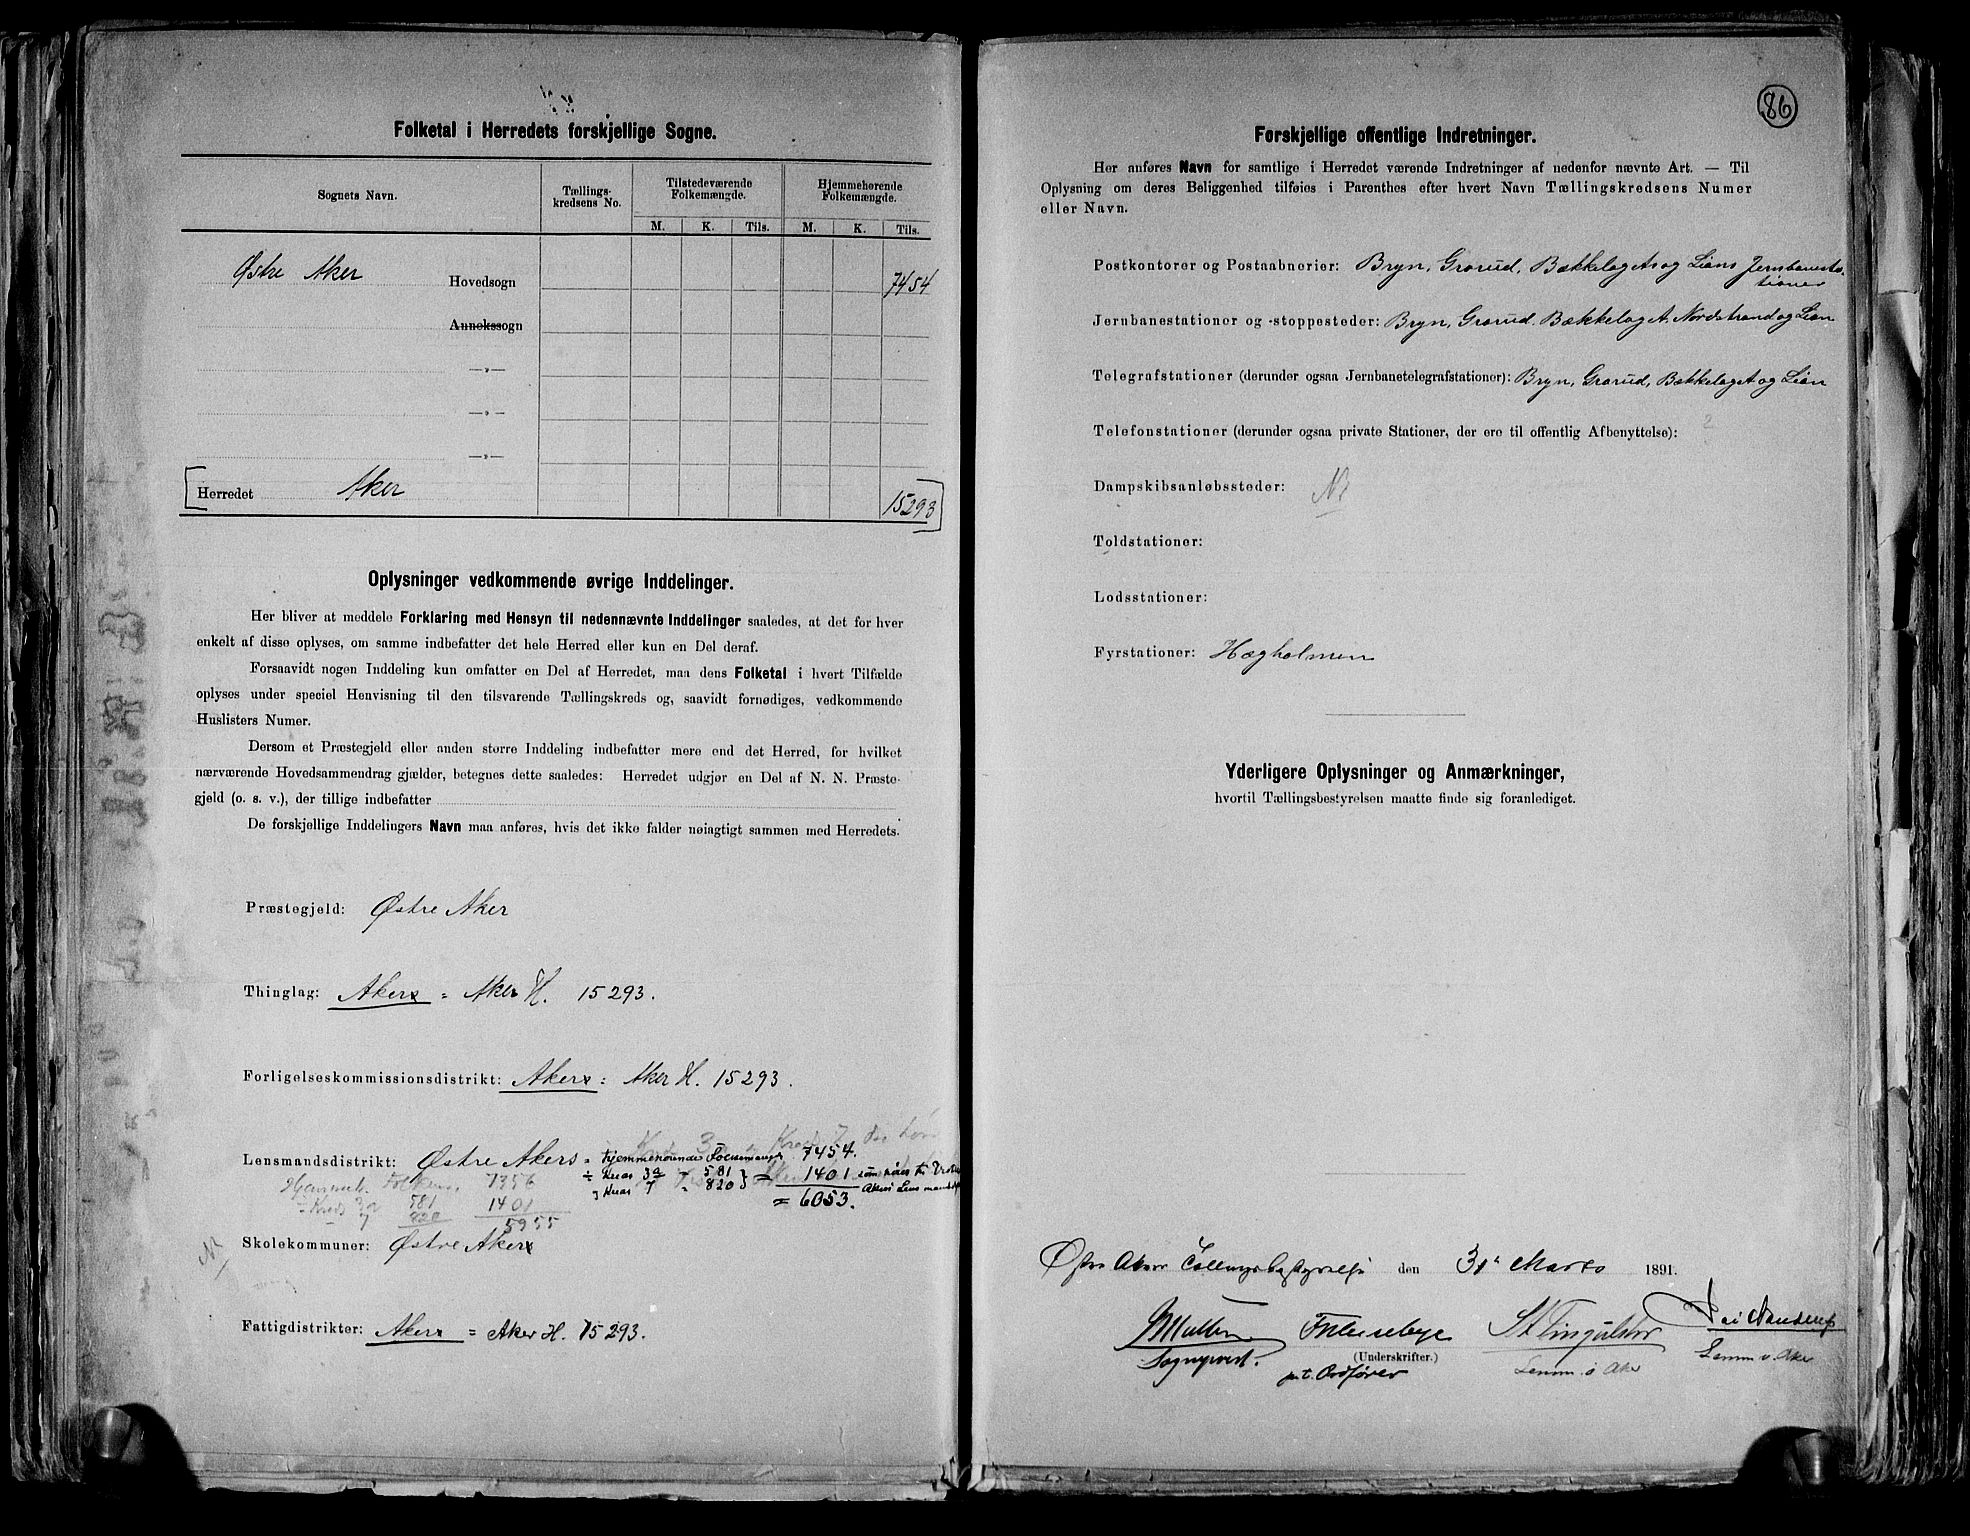 Folketal i Herredets forskjellige Sogne.
Sognets Navn.
Tællings-
kredsens No.
Tilstedeværende
Folkemængde.
Hjemmehørende
Folkemængde.
M. K. Tils. M. K. Tils.
Østre Aker Hovedsogn 7454
Annekssogn
—„—
—„—
—„—
Herredet Aker 15293
Oplysninger vedkommende øvrige Inddelinger.
Her bliver at meddele Forklaring med Hensyn til nedennævnte Inddelinger saaledes, at det for hver
enkelt af disse oplyses, om samme indbefatter det hele Herred eller kun en Del deraf.
Forsaavidt nogen Inddeling kun omfatter en Del af Herredet, maa dens Folketal i hvert Tilfælde
oplyses under speciel Henvisning til den tilsvarende Tællingskreds og, saavidt fornødiges, vedkommende
Huslisters Numer.
Dersom et Præstegjeld eller anden større Inddeling indbefatter mere end det Herred, for hvilket
nærværende Hovedsammendrag gjælder, betegnes dette saaledes: Herredet udgjør en Del af N. N. Præste-
gjeld (o. s. v.), der tillige indbefatter
De forskjellige Inddelingers Navn maa anføres, hvis det ikke falder nøiagtigt sammen med Herredets.
Præstegjeld: Østre Aker
Thinglag: Akers = Aker H. 15293.
Forligelseskommissionsdistrikt: Akers = Aker H. 15293.
Lensmandsdistrikt: Østre Akers = Hjemmehørendes Folkemængde 7454.
÷ Kreds 3a „ 581 } = 1401
„ Kreds 7 „ 820
= 6053.
7356
÷ Kreds 3a 581
7 820 1401
5955
Skolekommuner: Østre Akers
Fattigdistrikter: Akers = Aker H. 15293.
86
Forskjellige offentlige Indretninger.
Her anføres Navn for samtlige i Herredet værende Indretninger af nedenfor nævnte Art. — Til
Oplysning om deres Beliggenhed tilføies i Parenthes efter hvert Navn Tællingskredsens Numer
eller Navn.
Postkontorer og Postaabnerier: Bryn, Grorud, Bækkelagets og Lians Jernbanesta-
tioner
Jernbanestationer og -stoppesteder: Bryn, Grorud, Bækkelaget, Nordstrand og Lian
Telegrafstationer (derunder ogsaa Jernbanetelegrafstationer): Bryn, Grorud, Bækkelaget og Lian
Telefonstationer (derunder ogsaa private Stationer, der ere til offentlig Afbenyttelse): ?
Dampskibsanløbssteder:
Toldstationer:
Lodsstationer:
Fyrstationer: Hægholmen
Yderligere Oplysninger og Anmærkninger,
hvortil Tællingsbestyrelsen maatte finde sig foranlediget.
Østre Akers Tællingsbestyrelse den 31' Marts 1891.
(Underskrifter.)
Sognepræst. p.t. Ordfører Lensm. ø Aker Lensm v. Aker